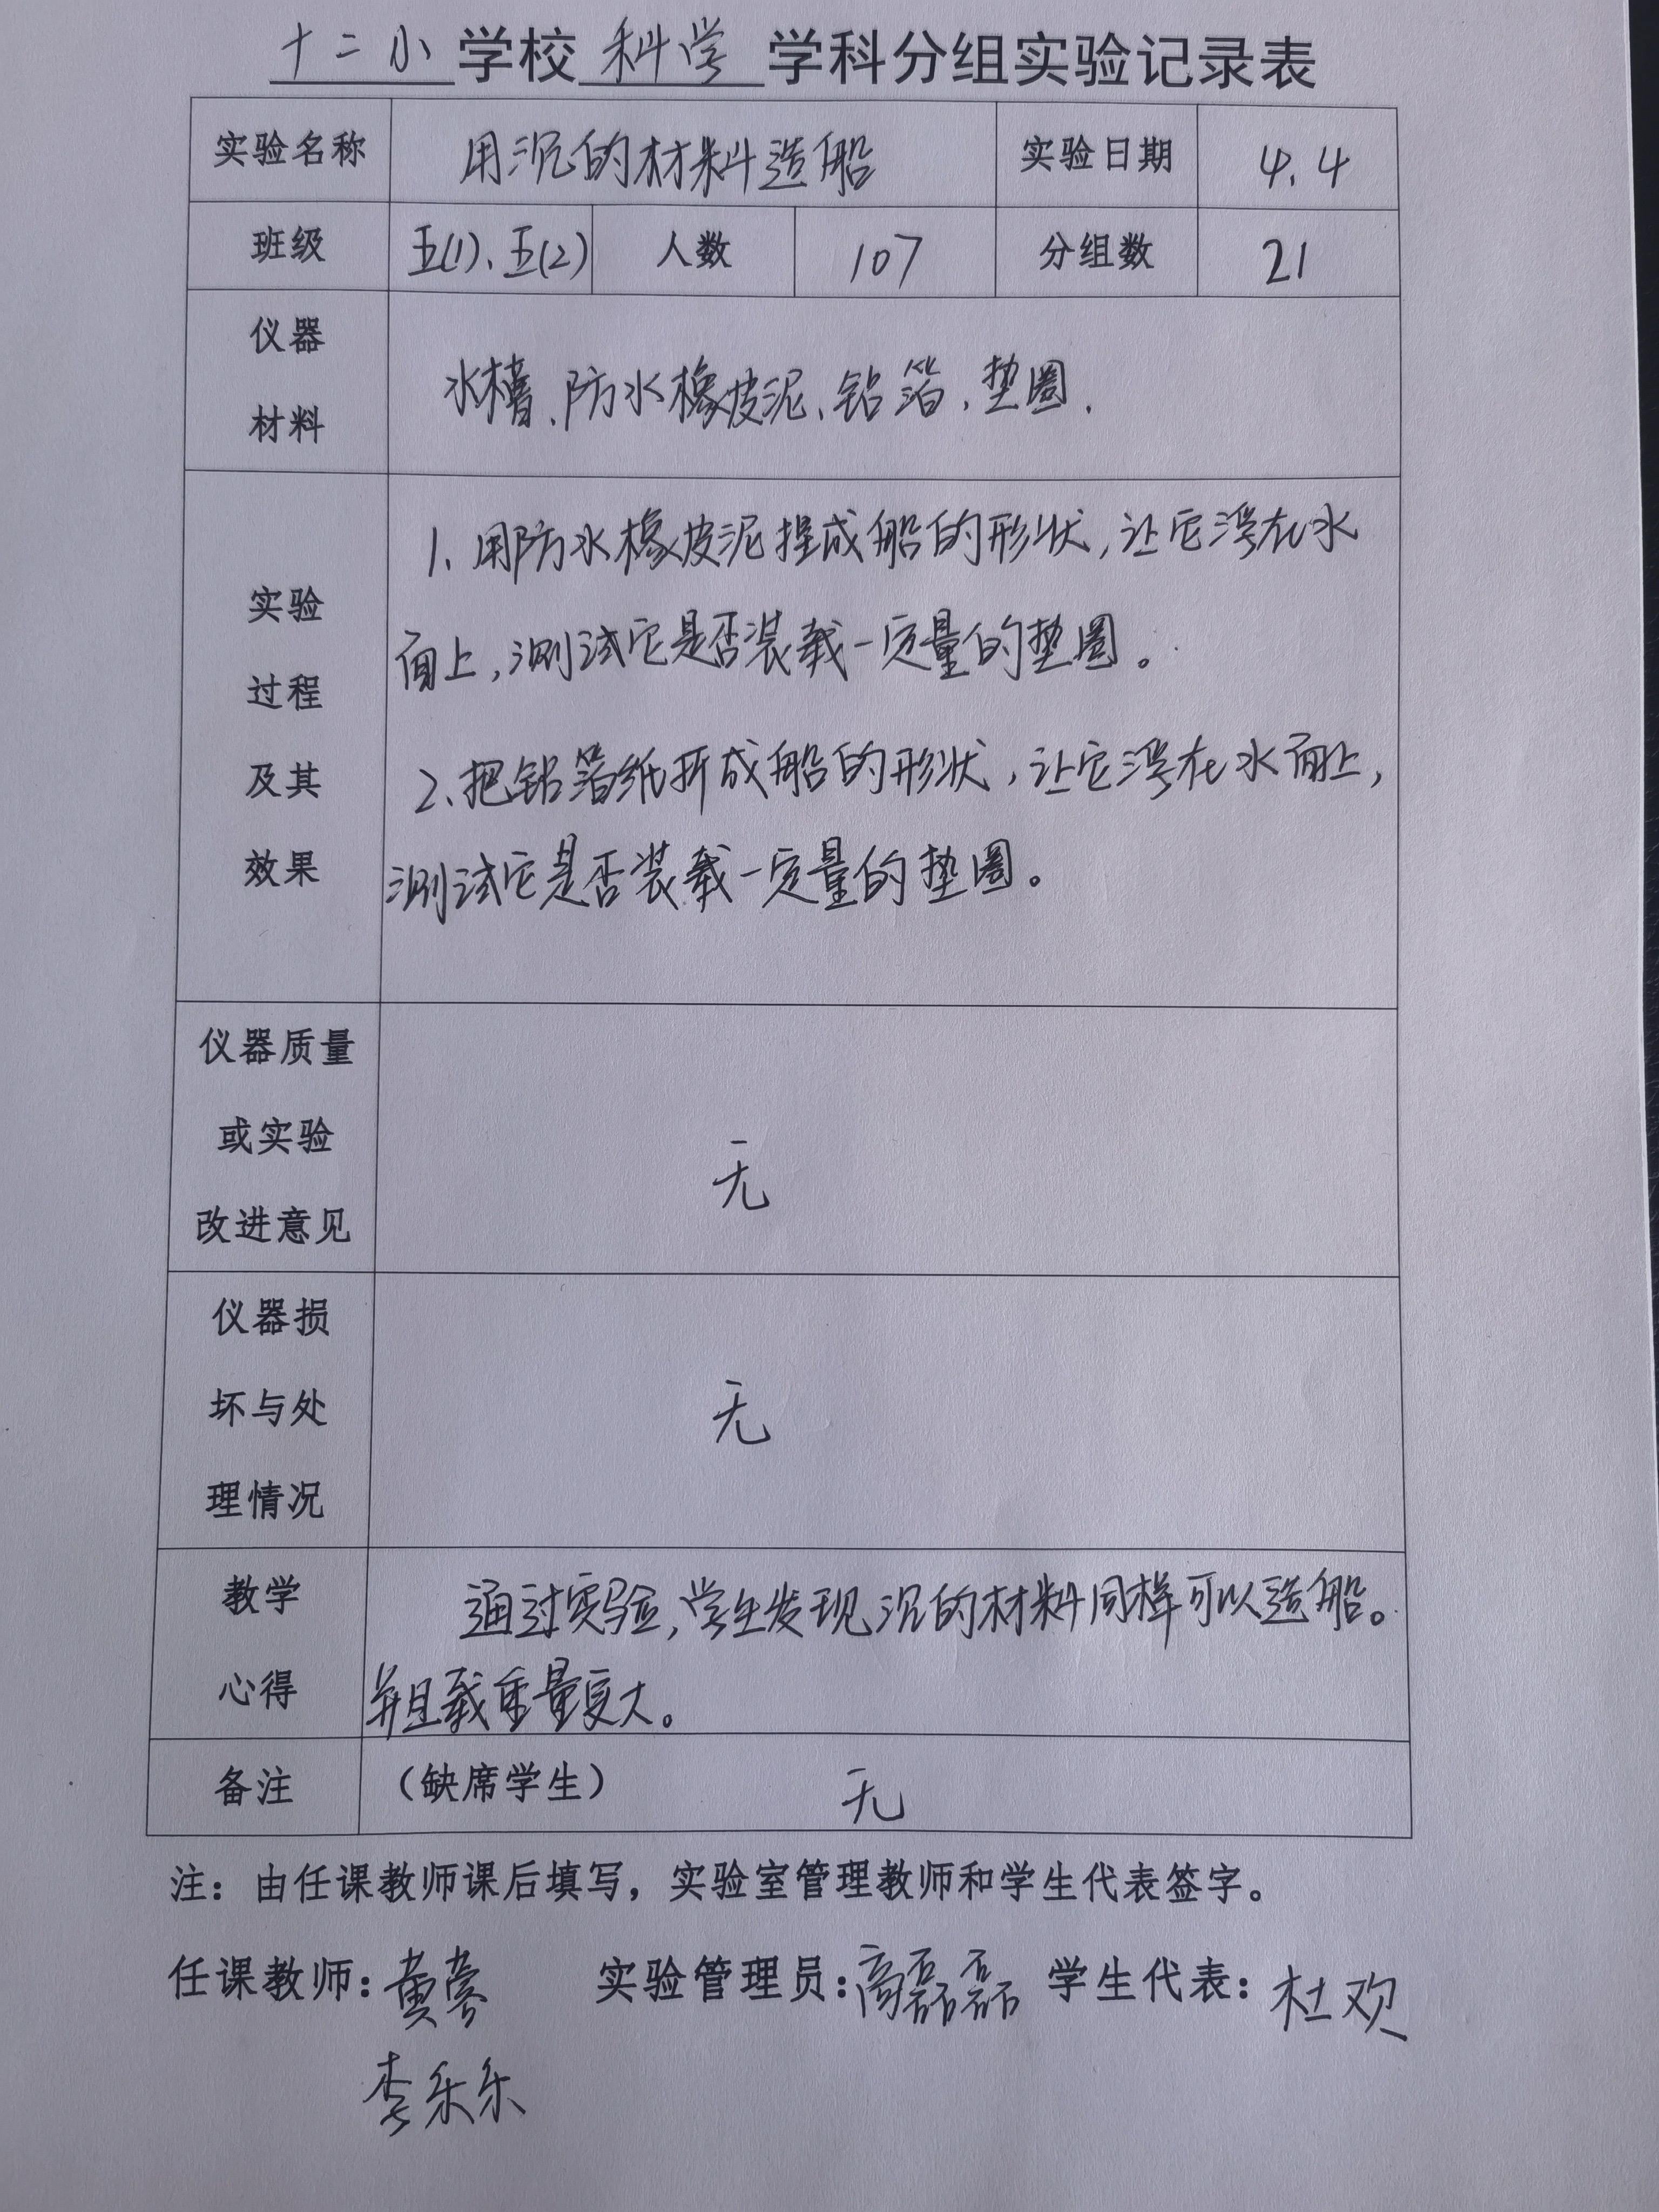 十二小学校科学学科分组实验记录表
实验名称 用沉的材料造船 实验日期 4.4
班级 五(1)、五(2) 人数 107 分组数 21
仪器
材料
水槽、防水橡皮泥、铝箔、垫圈.
实验
过程
及其
效果
1、用防水橡皮泥捏成船的形状,让它浮在水
面上,测试它是否装载一定量的垫圈。
2、把铝箔纸折成船的形状,让它浮在水面上,
测试它是否装载一定量的垫圈。
仪器质量
或实验
改进意见
无
仪器损
坏与处
理情况
无
教学
心得
通过实验,学生发现沉的材料同样可以造船。
并且载重量更大。
备注 (缺席学生) 无
注：由任课教师课后填写，实验室管理教师和学生代表签字。
任课教师：黄 实验管理员：高磊磊 学生代表：杜欢
李乐乐